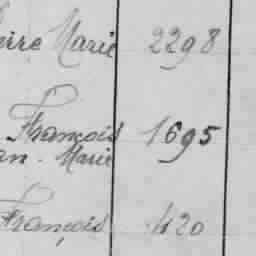 Marie 2298
François 1695
Marie
François 420